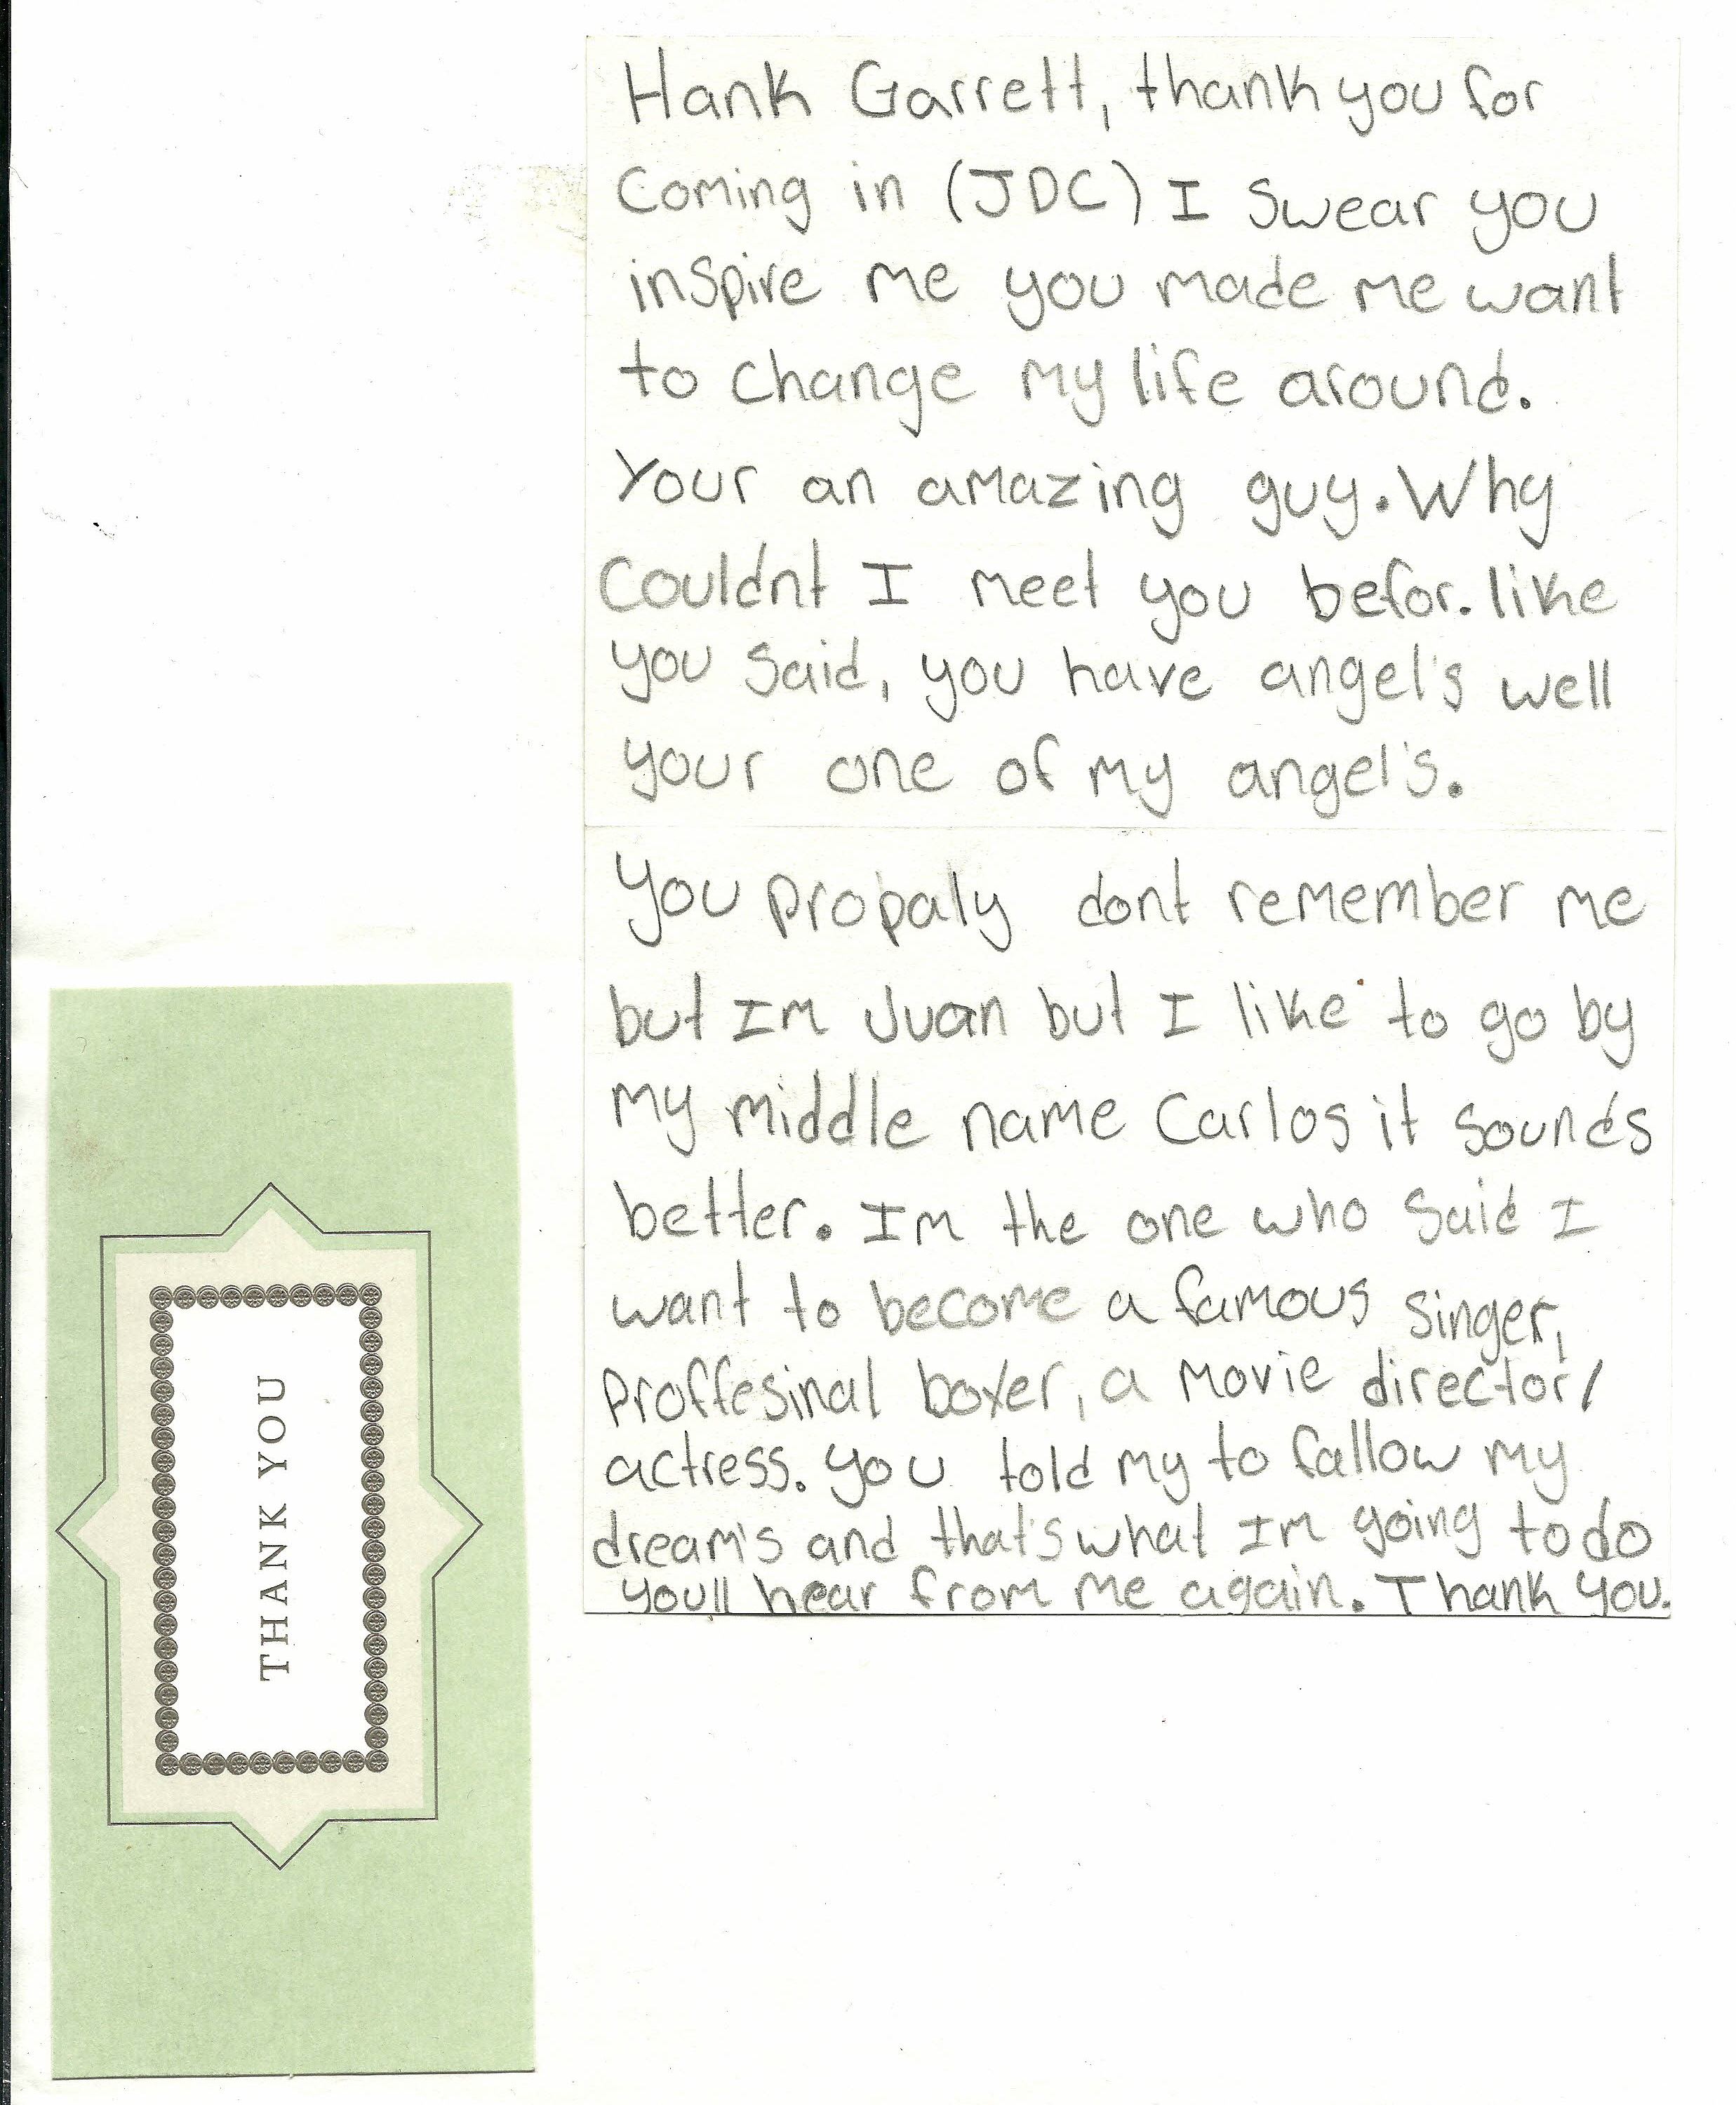 Hank Garrett, thank you for
Coming in (JDC) I swear you
inspire me you made me want
to change my life around.
Your an amazing guy. Why
Couldnt I meet you befor. like
you said, you have angel's well
your one of my angel's.
you propaly dont remember me
but Im Juan but I like to go by
my middle name Carlos it sounds
better. Im the one who said I
want to become a famous singer,
proffesinal boxer, a movie director/
actress. you told my to fallow my
dream's and that's what Im going to do
you'll hear from me again. Thank you.
THANK YOU